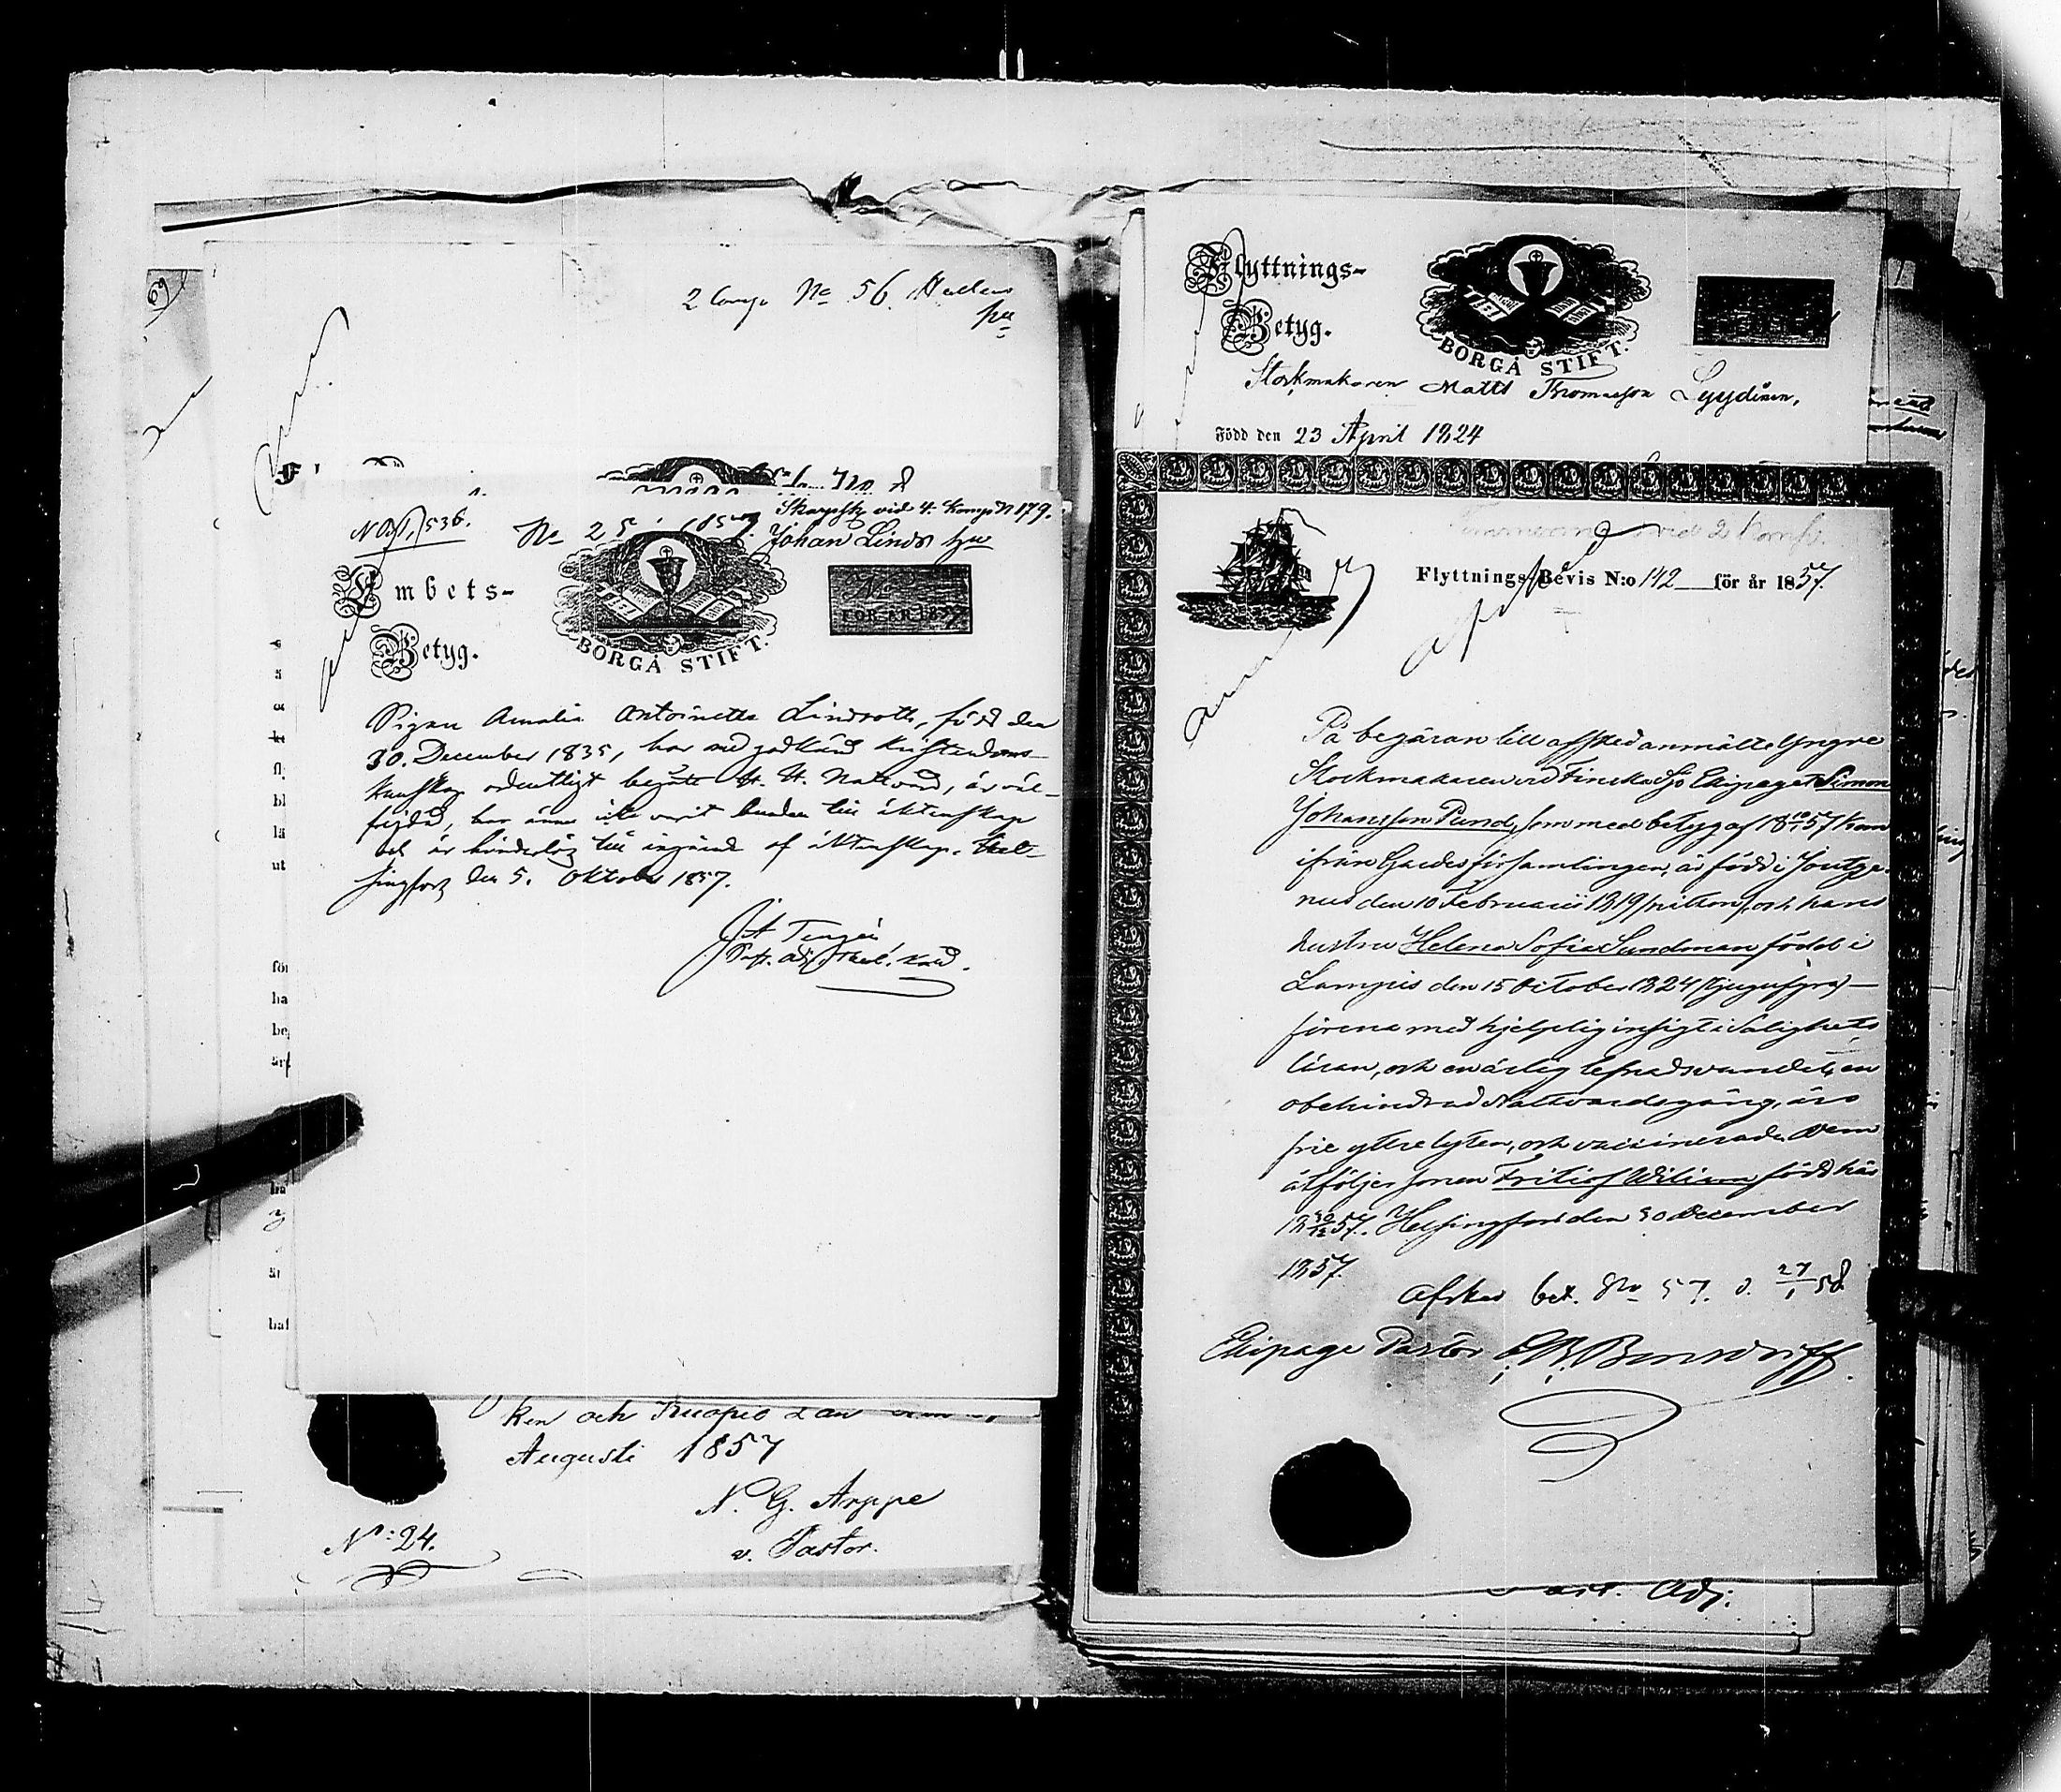 2 Comp No 56.
No 536.
No 25 1857.
Skarpsk. vid 4. Komp N 179.
Johan Lind
Ambets-
Betyg.
BORGÅ STIFT.
FÖR ÅR 1857
Pigan Amalia Antoinetta Lindroth, född den
30. December 1835, har med godkänd Kristendoms-
kunskap ordentligt begått H. H. Nattvard, är väl-
frejdad, har ännu icke varit bunden till äktenskap
och är hinderlös till ingående af äktenskap. Hel-
singfors den 5. Oktober 1857.
ken och Kuopio
Augusti 1857
N. G. Arppe
v. Pastor.
No: 24.
Flyttnings-
Betyg.
BORGÅ STIFT.
Stockmakaren Matts Thomasson Lyydinen,
Född den 23 April 1824
vid 2 Komp.
Flyttnings-Bevis N:o 142 för år 1857.
På begäran till afsked anmälte Yngre
Stockmakaren vid Finska Sjö Ekipaget Simon
Johansson Pund, som med betyg af 18 57 kom
ifrån Gardesförsamlingen, är född i Joutse-
nus den 10 Februarii 1819 /nitton/, och hans
hustru Helena Sofia Sundman född i
Lampis den 15 October 1824 /tjugufyra/ —
förena med hjelplig insigt i Salighets
läran, och en ärlig lefnadsvandel, en
obehindrad Nattvardsgång, äro
frie yttre lyten, och vaccinerade. Dem
åtföljer sonen Fritiof Wiliam född här
18 30/12 57. Helsingfors den 30 December
1857.
Afsked bet. No 57. d. 27/1 58
Ekipage Pastor
Past. Adj.